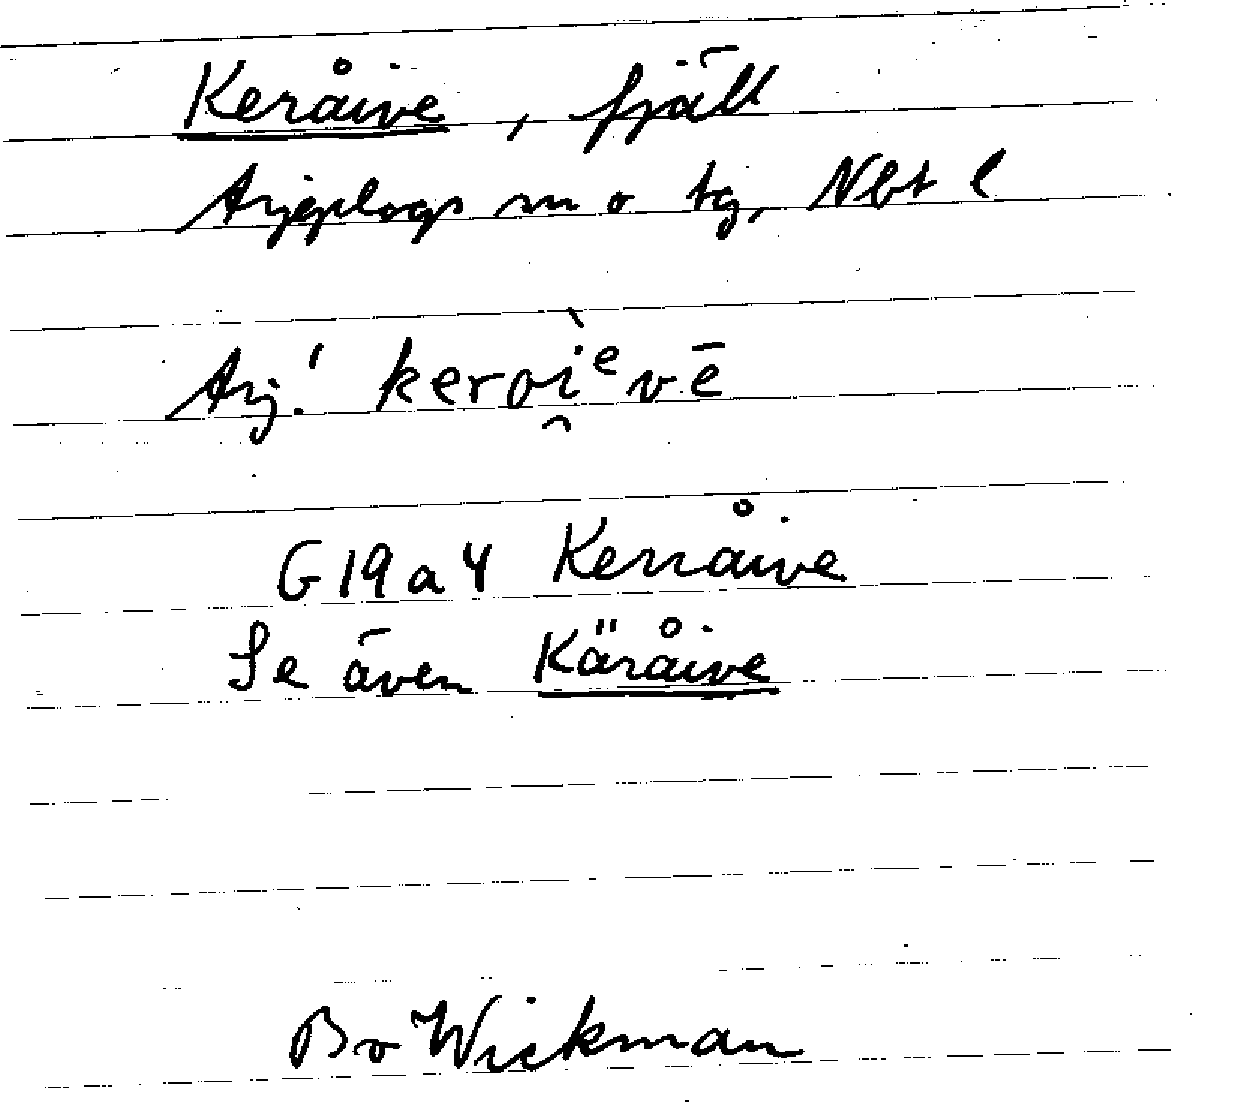 Keråive, fjäll
Arjeplogs sn o tg, Nbt l
Arj! keroì̯ᵉvē
G19a4 Kerråive
Se även Käråive
Bo Wickman